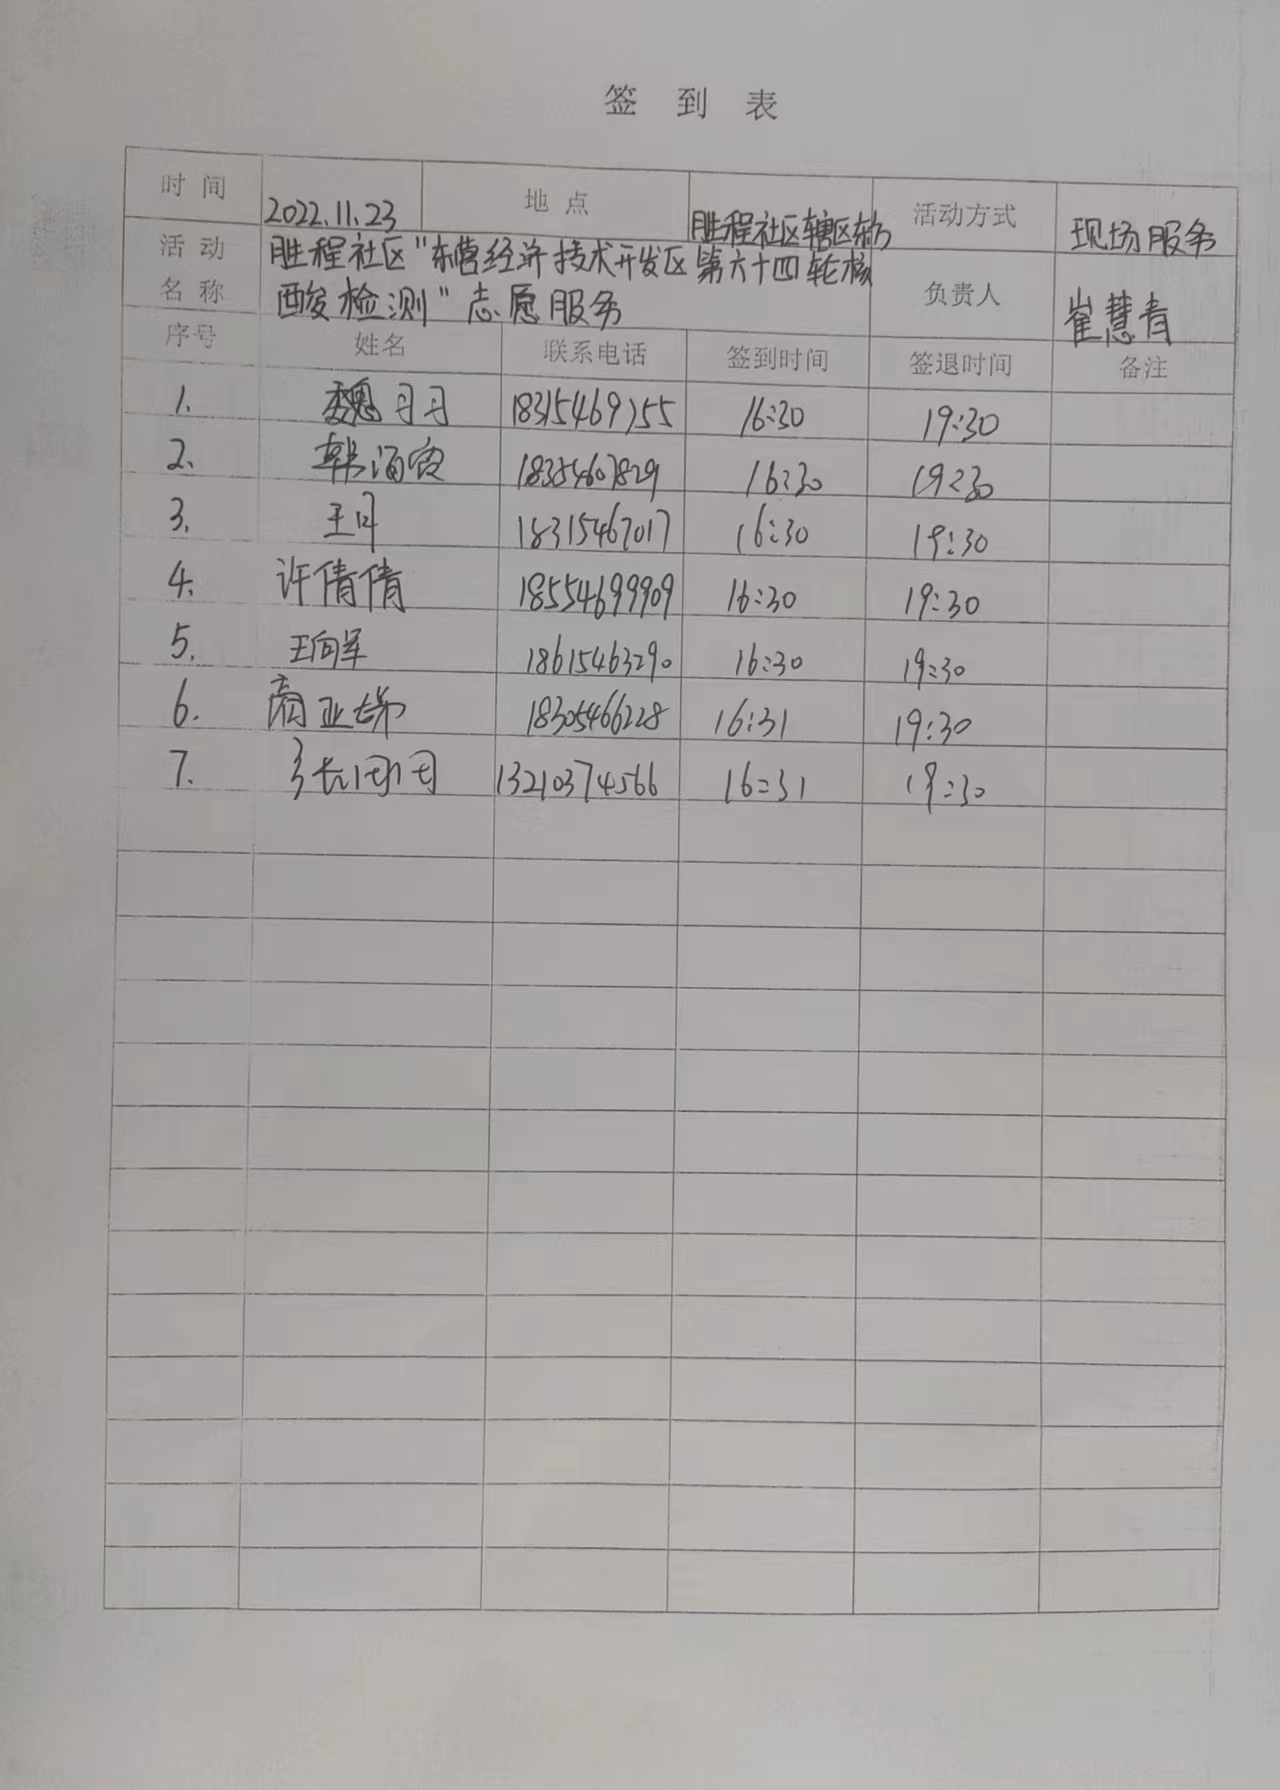 签 到 表
时 间 2022.11.23 地 点 胜程社区辖区东方 活动方式 现场服务
活 动 名 称 胜程社区"东营经济技术开发区第六十四轮核
酸检测"志愿服务 负责人 崔慧青
序号 姓名 联系电话 签到时间 签退时间 备注
1. 魏习习 18315469755 16:30 19:30
2. 韩海 18354607829 16:30 19:30
3. 王 18315467017 16:30 19:30
4. 许倩倩 18554699909 16:30 19:30
5. 王向军 18615463290 16:30 19:30
6. 商亚娣 18305466228 16:31 19:30
7. 13210374566 16:31 19:30